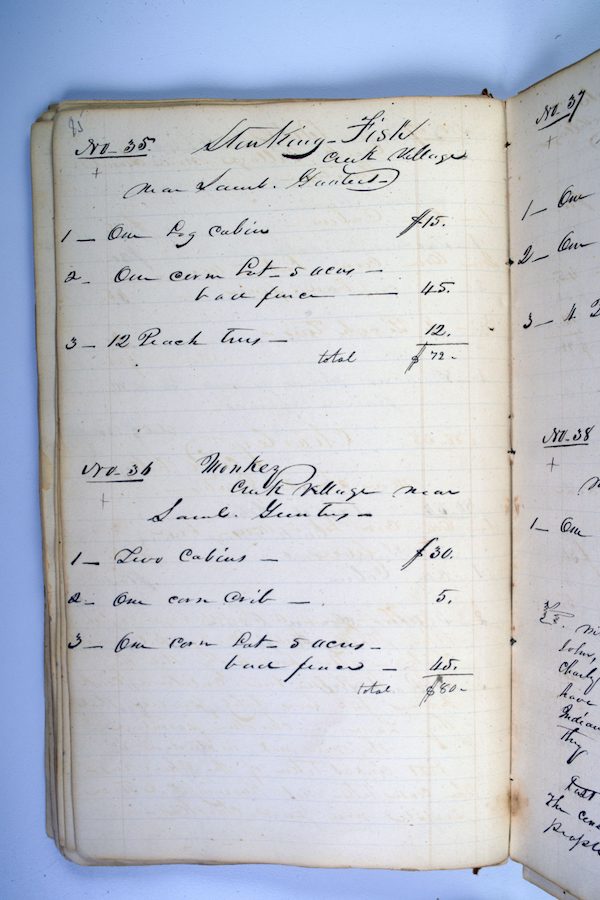 95
No. 35 Stinking-Fish
Creek Village
near Samb. Gunters
1 — One Log cabin $15.
2 — One corn Lot - 5 acres —
bad fence — 45.
3 — 12 Peach trees — 12.
total $72-
No. 36 Monkey
Creek Village near
Samb. Gunters —
1 — Two Cabins — $30.
2 — One corn Crib — 5.
3 — One corn Lot - 5 acres —
bad fence — 45.
total $80-
No. 37
1 — One
2 — One
3 — 4
No. 38
1 — One
John,
Charly
have
Indian
they
East
The
people